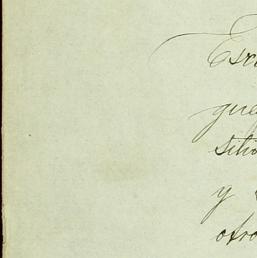 Esc
que
sitio
y
otro